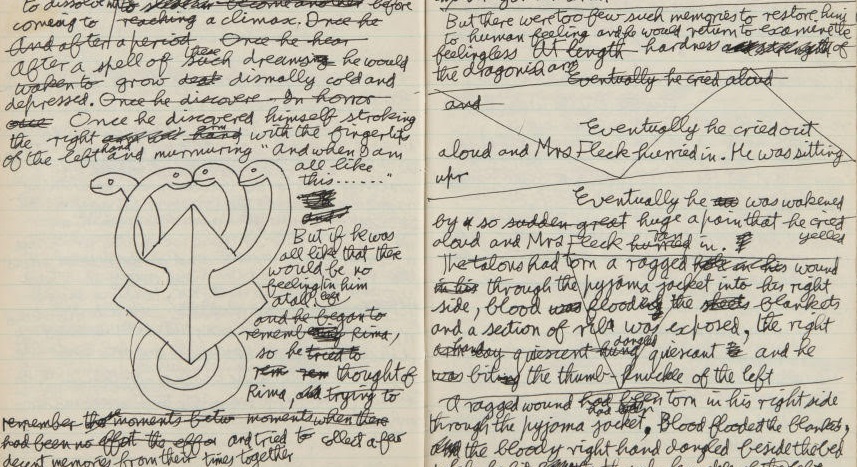 to dissolve into become another before
coming to reaching a climax. Once he
And after a period Once he hear
After a spell of such these dreams he would
waken to grow dismally cold and
depressed. Once he discovere In horror
Once he discovered himself stroking
the right hand arm with the fingertips
of the left hand and murmuring "And when I am
all like
this......"
But if he was
all like that there
would be no
feeling in him
at all,
and he began to
remember Rima,
so he tried to
thought of
Rima, trying to
remember the moments betw moments when there
had been no effort the effor and tried to collect a few
decent memories from their times together
But there were too few such memories to restore him
to human feeling and he would return to examine the
feelingless At length hardness and strength of
the dragonish arm
Eventually he cried aloud
and
Eventually he cried out
aloud and Mrs Fleck hurried in. He was sitting
upr
Eventually he was wakened
by a so sudden great huge a pain that he cried
aloud and Mrs Fleck hurried ran in. yelled
The talons had torn a ragged hole in his wound
in his through the pyjama jacket into his right
side, blood was flooding the sheets blankets
and a section of rib was exposed, the right
quiescent hung dangled quiescent and he
was biting the thumb-knuckle of the left
A ragged wound had been torn in his right side
through the pyjama jacket. Blood flooded the blankets,
the bloody right hand dangled beside the bed